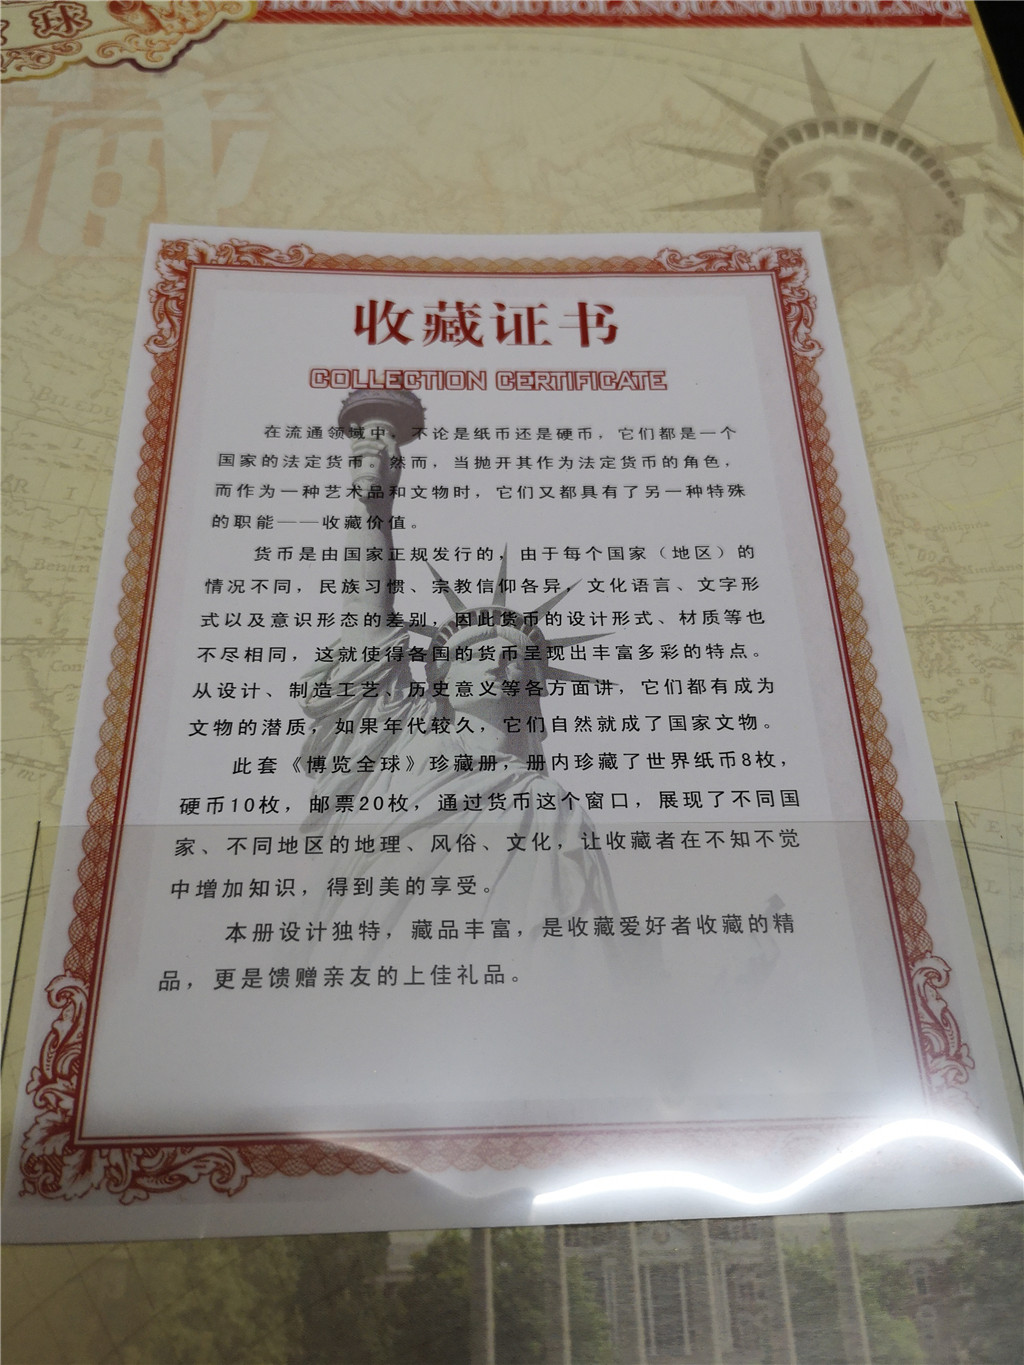 球
BOLANQUANQIUBOLANQUANQIUBOLANQ
藏
收藏证书
COLLECTION CERTIFICATE
在流通领域中，不论是纸币还是硬币，它们都是一个
国家的法定货币。然而，当抛开其作为法定货币的角色，
而作为一种艺术品和文物时，它们又都具有了另一种特殊
的职能——收藏价值。
货币是由国家正规发行的，由于每个国家（地区）的
情况不同，民族习惯、宗教信仰各异，文化语言、文字形
式以及意识形态的差别，因此货币的设计形式、材质等也
不尽相同，这就使得各国的货币呈现出丰富多彩的特点。
从设计、制造工艺、历史意义等各方面讲，它们都有成为
文物的潜质，如果年代较久，它们自然就成了国家文物。
此套《博览全球》珍藏册，册内珍藏了世界纸币8枚，
硬币10枚，邮票20枚，通过货币这个窗口，展现了不同国
家、不同地区的地理、风俗、文化，让收藏者在不知不觉
中增加知识，得到美的享受。
本册设计独特，藏品丰富，是收藏爱好者收藏的精
品，更是馈赠亲友的上佳礼品。